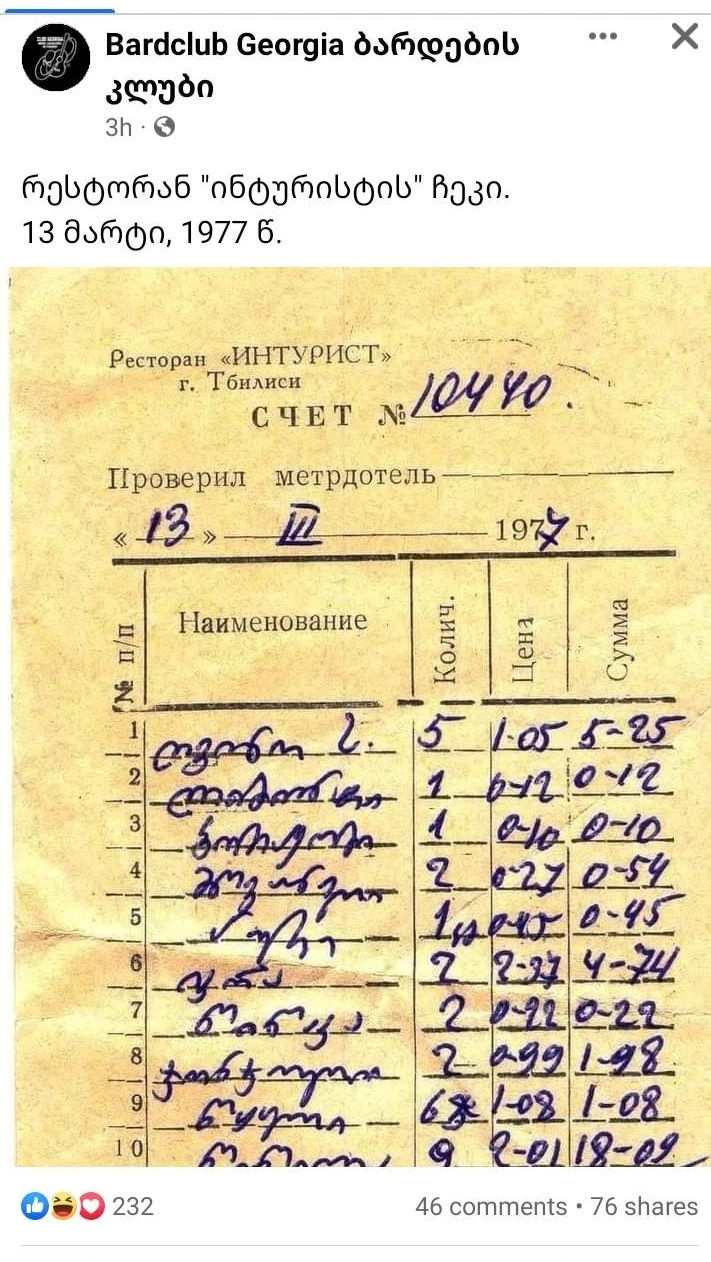 Bardclub Georgia ბარდების
კლუბი
3h
რესტორან "ინტურისტის" ჩეკი.
13 მარტი, 1977 წ.
Ресторан «ИНТУРИСТ»
г. Тбилиси
СЧЕТ № 10440.
Проверил метрдотель
« 13 » III 1977 г.
№ п/п Наименование Колич. Цена Сумма
1 ღვინო ს. 5 1-05 5-25
2 ლიმონათი 1 0-12 0-12
3 ბორჯომი 1 0-10 0-10
4 2 0-27 0-54
5 პური 1 0-45 0-45
6 2 2-37 4-74
7 წიწაკა 2 0-22 0-22
8 ჯონჯოლი 2 0-99 1-98
9 6 1-08 1-08
10 9 2-01 18-09
232 46 comments • 76 shares